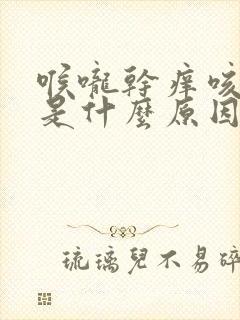 喉嚨幹癢咳
是什麼原因
琉璃兒不易碎